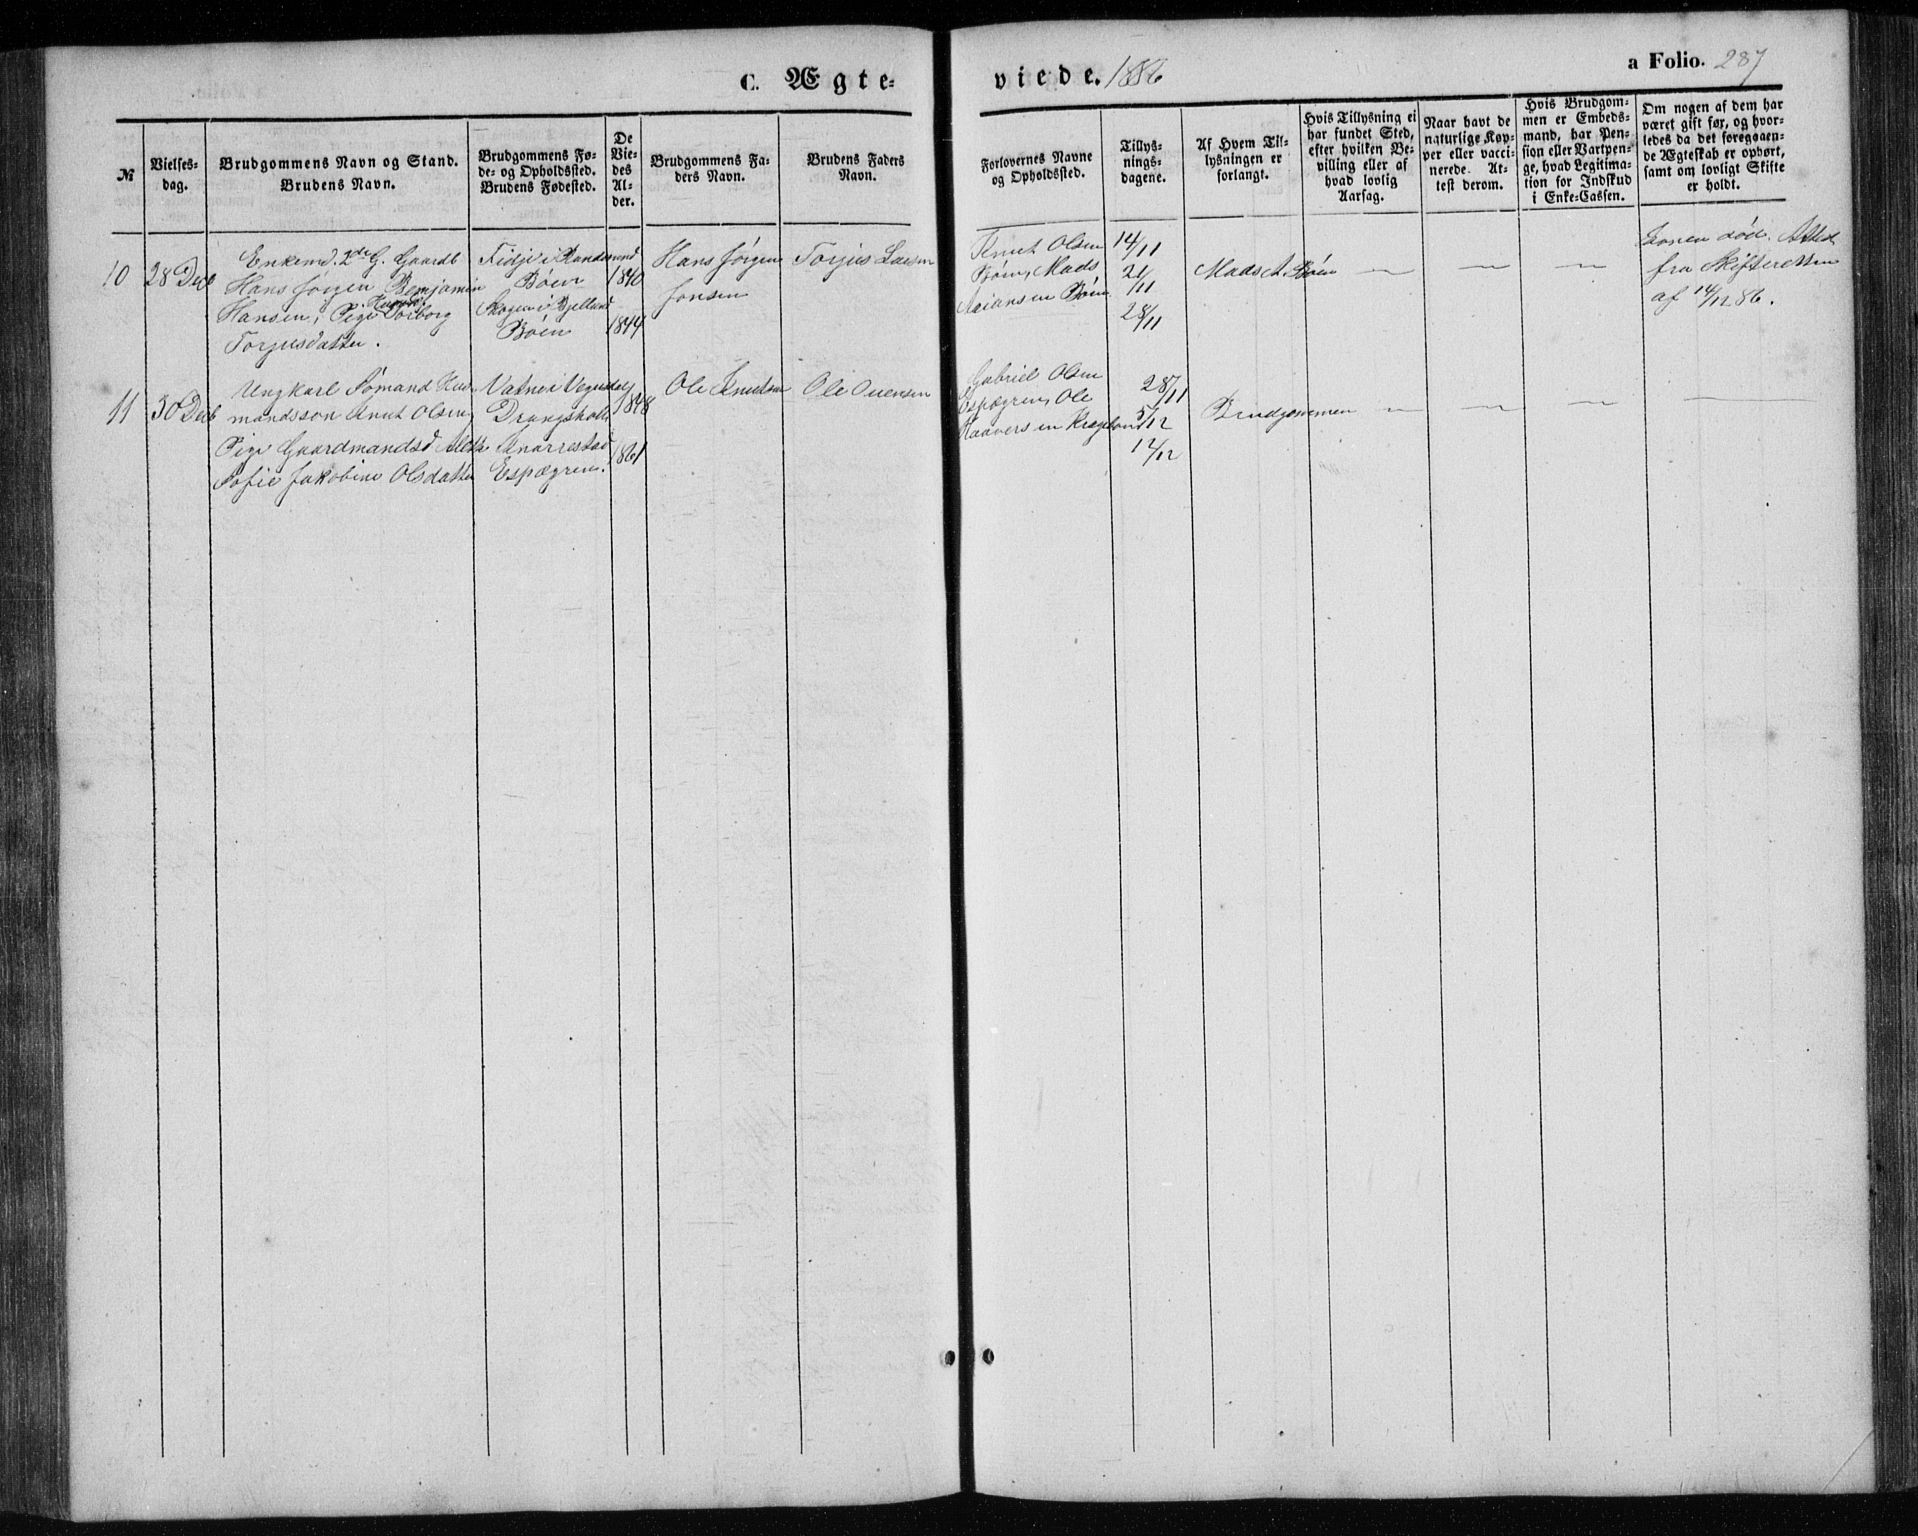 C. Ægte-
viede. 1886
a Folio. 287
№
Vielses-
dag.
Brudgommens Navn og Stand.
Brudens Navn.
Brudgommens Fø-
de- og Opholdssted.
Brudens Fødested.
De
Vie-
des
Al-
der.
Brudgommens Fa-
ders Navn.
Brudens Faders
Navn.
Forlovernes Navne
og Opholdssted.
Tillys-
nings-
dagene.
Af Hvem Til-
lysningen er
forlangt.
Hvis Tillysning ei
har fundet Sted,
efter hvilken Be-
villing eller af
hvad lovlig
Aarsag.
Naar havt de
naturlige Kop-
per eller vacci-
nerede. At-
test derom.
Hvis Brudgom-
men er Embeds-
mand, har Pen-
sion eller Vartpen-
ge, hvad Legitima-
tion for Indskud
i Enke-Cassen.
Om nogen af dem har
været gift før, og hvor-
ledes da det foregaaen-
de Ægteskab er ophørt,
samt om lovligt Skifte
er holdt.
10
28 Decb
Enkemd. 2de G. Gaardb
Hans Jørgen Benjamin
Hansen, Pige Torborg
Torjusdatter.
Fidje i Randesund
Bøen
Skogen i Bjelland
Bøen
1840
1844
Hans Jørgen
Jonsen
Torjus Larsen
Knut Olsen
Bøen, Mads
Asiansen Bøen
14/11
21/11
28/11
Mads A. Bøen
—
—
—
Konen død. Attest
fra Skifteretten
af 14/12 86.
11
30 Decb
Ungkarl Sømand Hus-
mandsson Knut Olsen
Pige Gaardmandsd
Sofie Jakobine Olsdatter
Vatne i Vegusdal
Drangsholt
Knarrestad
Espægren.
1848
1861
Ole Knutsen
Ole Evensen
Gabriel Olsen
Espægren, Ole
28/11
5/12
12/12
Brudgommen
—
—
—
—